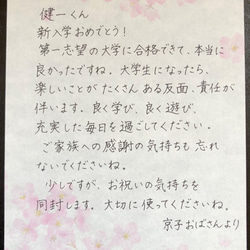 健一くん
新入学おめでとう！
第一志望の大学に合格できて、本当に
良かったですね。大学生になったら、
楽しいことが たくさん ある反面、責任が
伴います。良く学び、良く遊び、
充実した毎日を過ごしてください。
ご家族への感謝の気持ちも 忘れ
ないでくださいね。
少しですが、お祝いの気持ちを
同封します。大切に使ってくださいね。
京子おばさんより